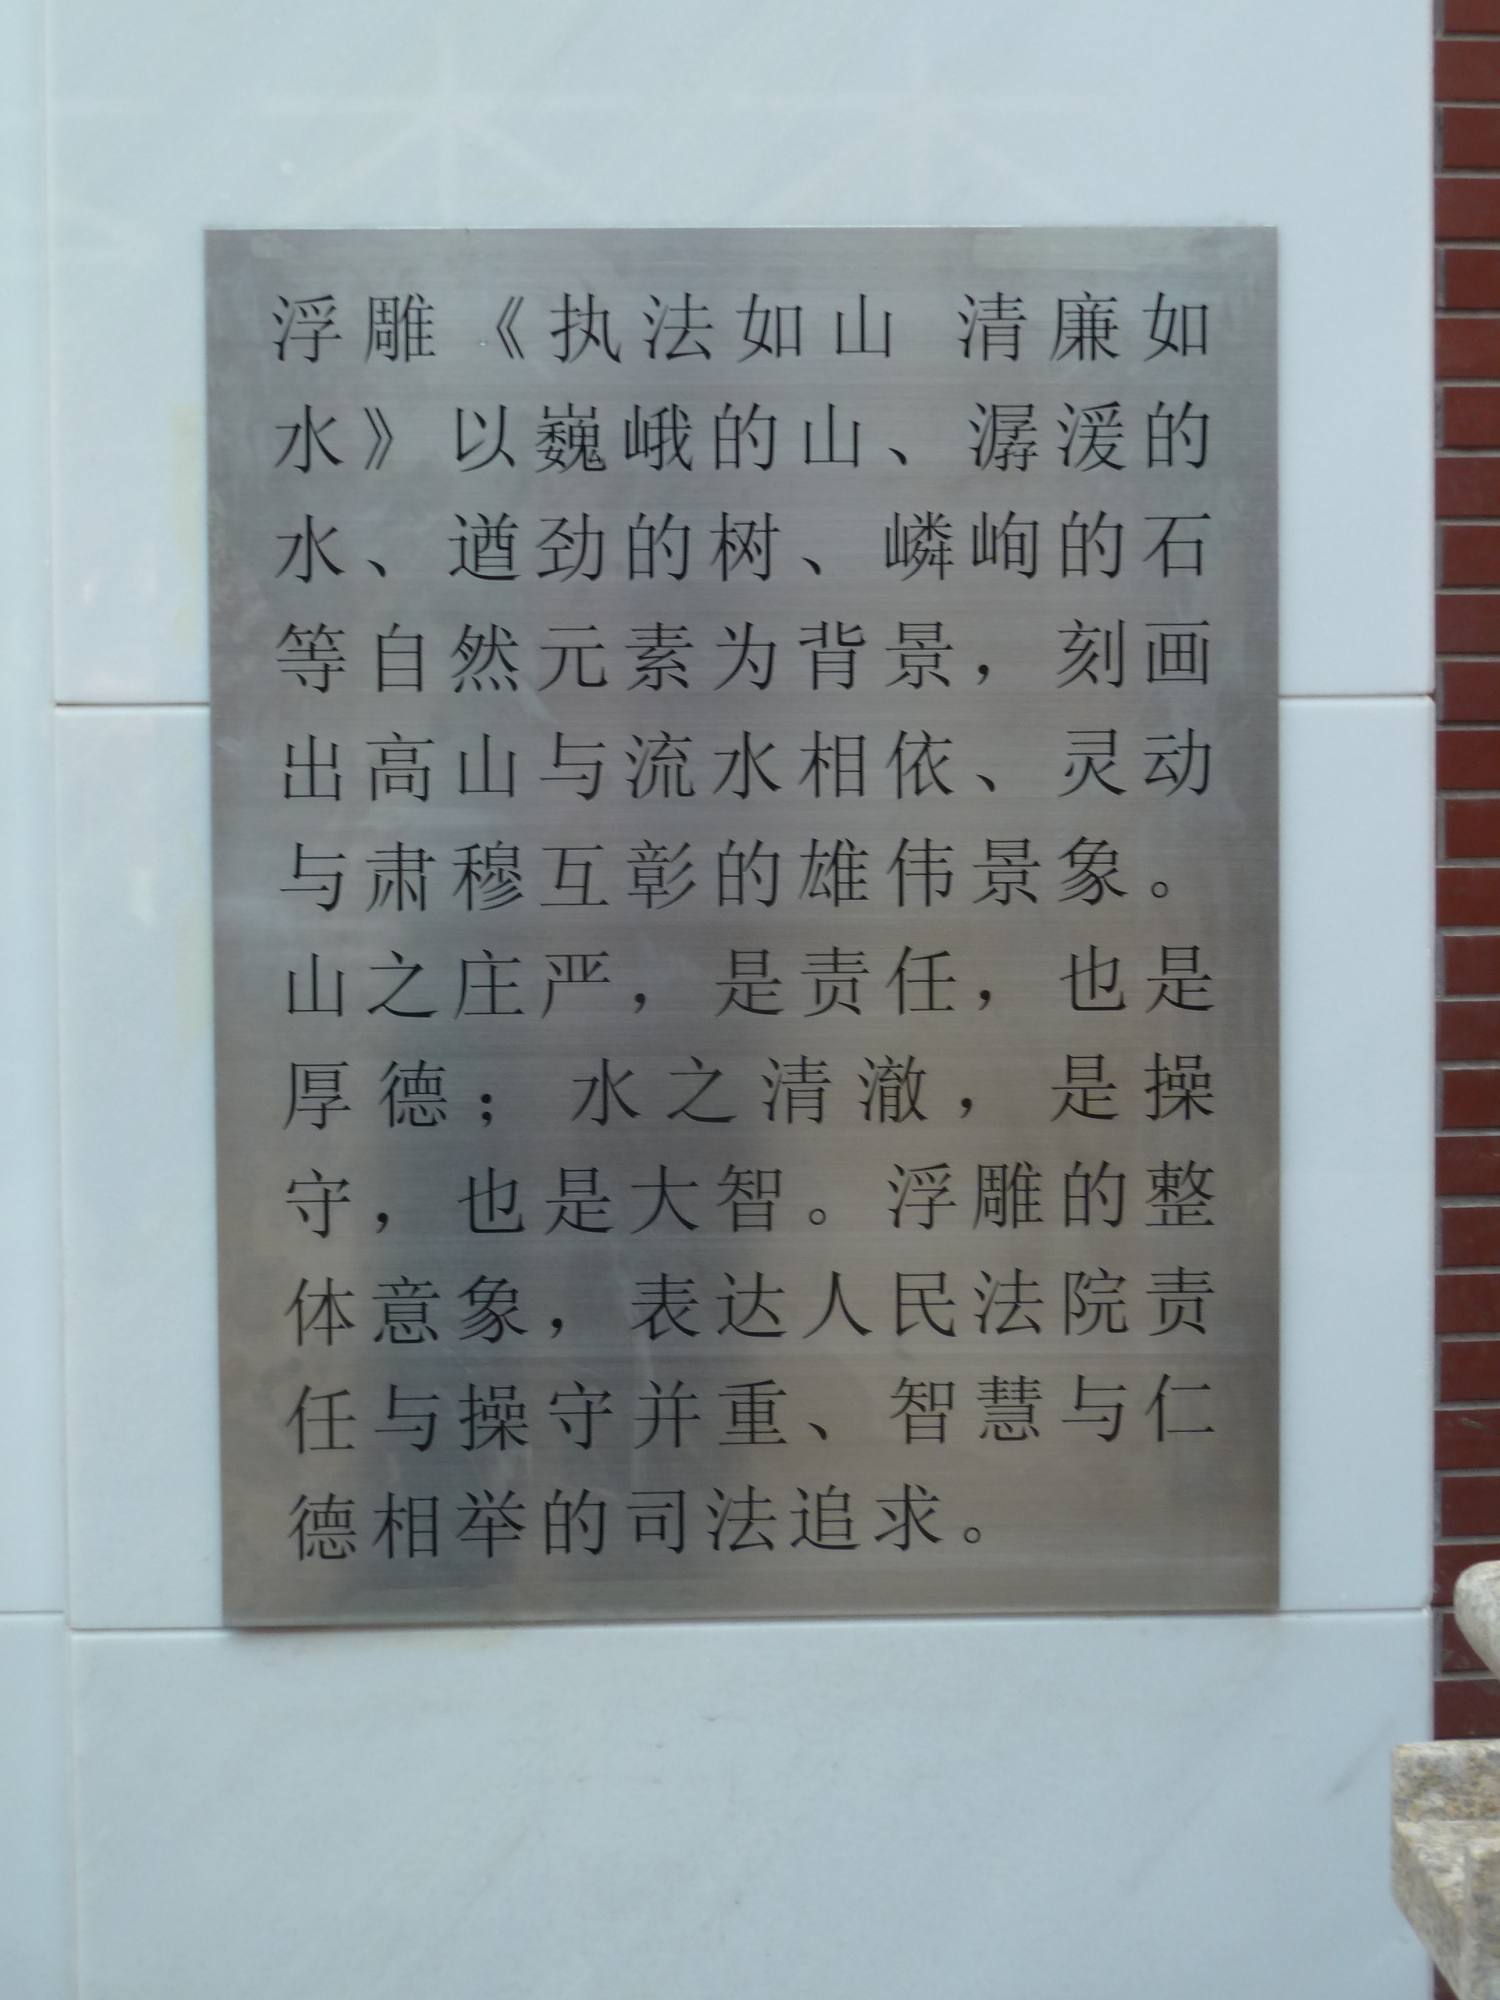 浮雕《执法如山 清廉如
水》以巍峨的山、潺湲的
水、遒劲的树、嶙峋的石
等自然元素为背景，刻画
出高山与流水相依、灵动
与肃穆互彰的雄伟景象。
山之庄严，是责任，也是
厚德；水之清澈，是操
守，也是大智。浮雕的整
体意象，表达人民法院责
任与操守并重、智慧与仁
德相举的司法追求。